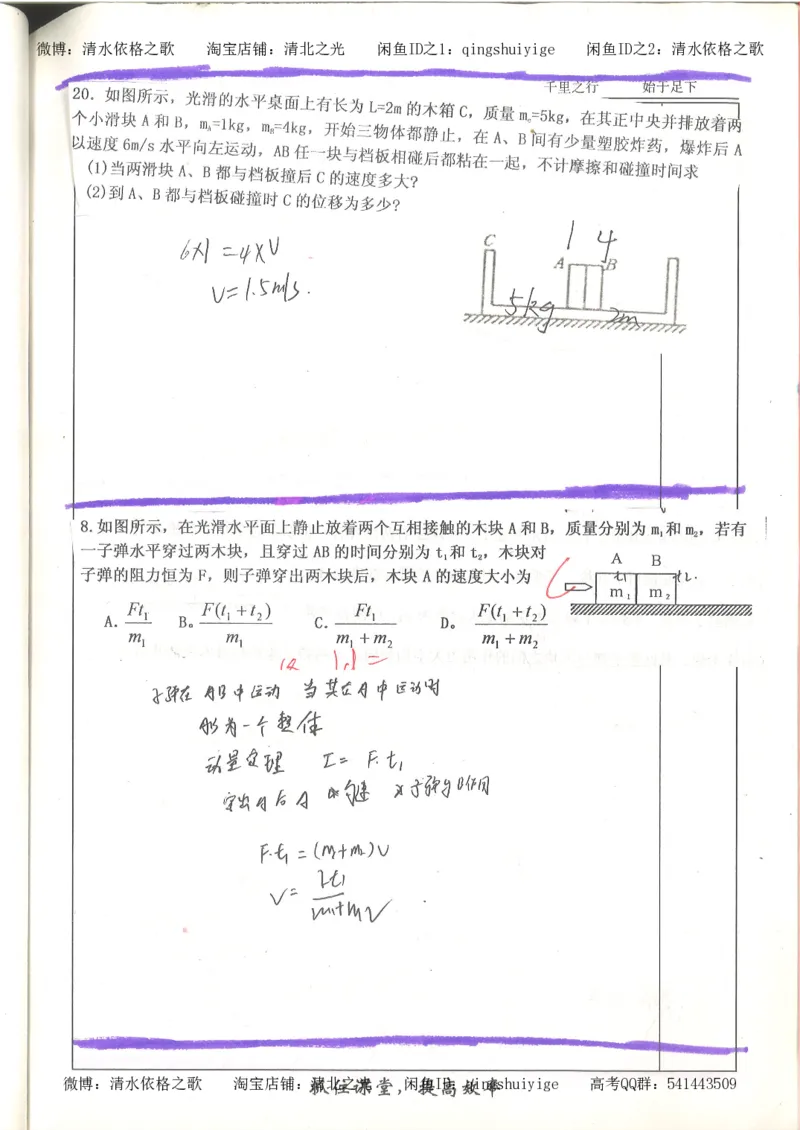 微博：清水依格之歌 淘宝店铺：清北之光 闲鱼ID之1：qingshuiyige 闲鱼ID之2：清水依格之歌
千里之行 始于足下
20. 如图所示，光滑的水平桌面上有长为 L=2m 的木箱 C，质量 mc=5kg，在其正中央并排放着两
个小滑块 A 和 B，mA=1kg，mB=4kg，开始三物体都静止，在 A、B 间有少量塑胶炸药，爆炸后 A
以速度 6m/s 水平向左运动，AB 任一块与档板相碰后都粘在一起，不计摩擦和碰撞时间求
(1)当两滑块 A、B 都与档板撞后 C 的速度多大?
(2)到 A、B 都与档板碰撞时 C 的位移为多少?
6×1=4×V
V=1.5m/s.
1 4
C
A B
5kg 2m
8.如图所示，在光滑水平面上静止放着两个互相接触的木块 A 和 B，质量分别为 m₁和 m₂，若有
一子弹水平穿过两木块，且穿过 AB 的时间分别为 t₁和 t₂，木块对
子弹的阻力恒为 F，则子弹穿出两木块后，木块 A 的速度大小为
A B
t₁ t2.
m₁ m₂
A. Ft₁/m₁ B。 F(t₁+t₂)/m₁ C. Ft₁/(m₁+m₂) D。 F(t₁+t₂)/(m₁+m₂)
子弹在AB中运动 当其在A中运动时
AB为一个整体
动量定理 I= F.t₁
穿出A后A 匀速 子弹与B作用
F.t₁=(m+m₂)V
V=
m₁+m2
微博：清水依格之歌 淘宝店铺：清北之光 闲鱼ID：qingshuiyige 高考QQ群：541443509
抓住课堂，提高效率